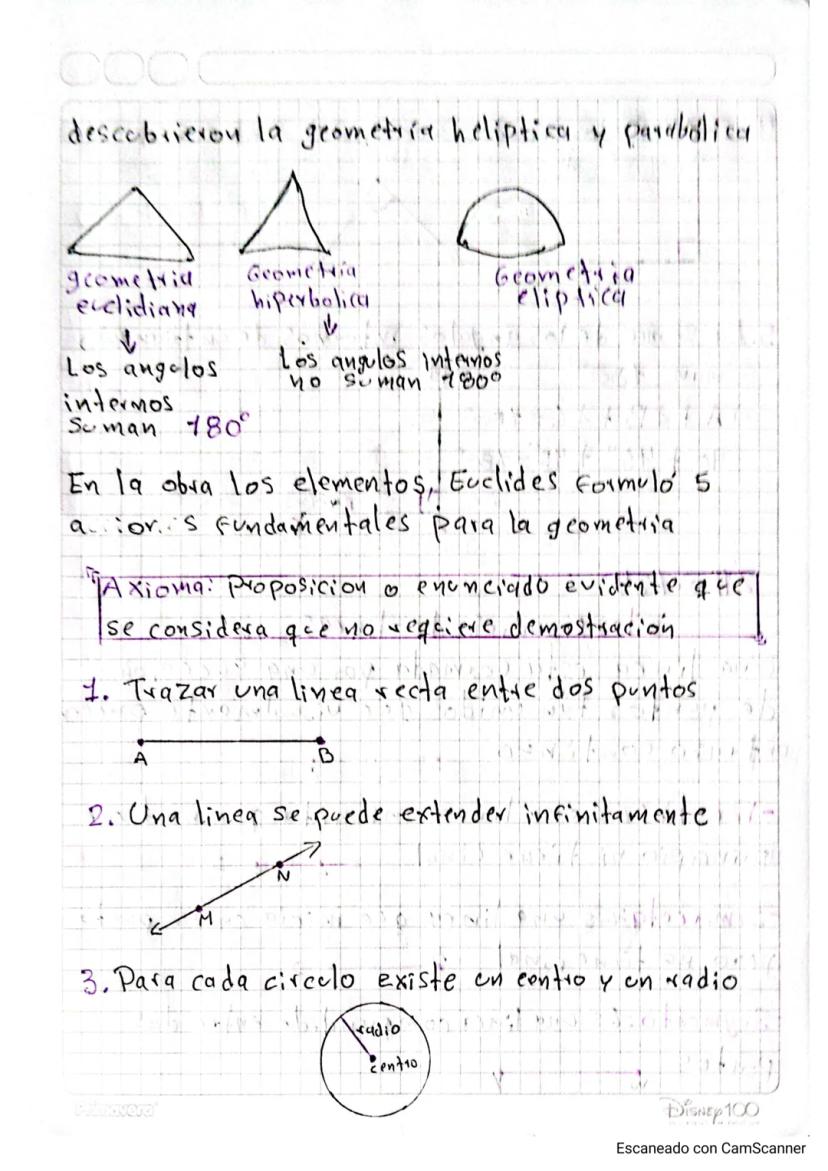 descubrieron la geometría heliptica y parabólica
geometria
euclidiana
Geometría
hiperbolica
Geometria
eliptica
Los angulos
internos
suman 180°
Los angulos internos
no suman 180°
En la obra los elementos, Euclides formuló 5
fundamentales para la geometria
Axioma: Proposicion o enunciado evidente que
se considera que no requiere demostración
1. Trazar una linea recta entre dos puntos
A
B
2. Una linea se puede extender infinitamente
N
M
3. Para cada circulo existe un centro y un radio
radio
centro
Primavera
Disney100
Escaneado con CamScanner